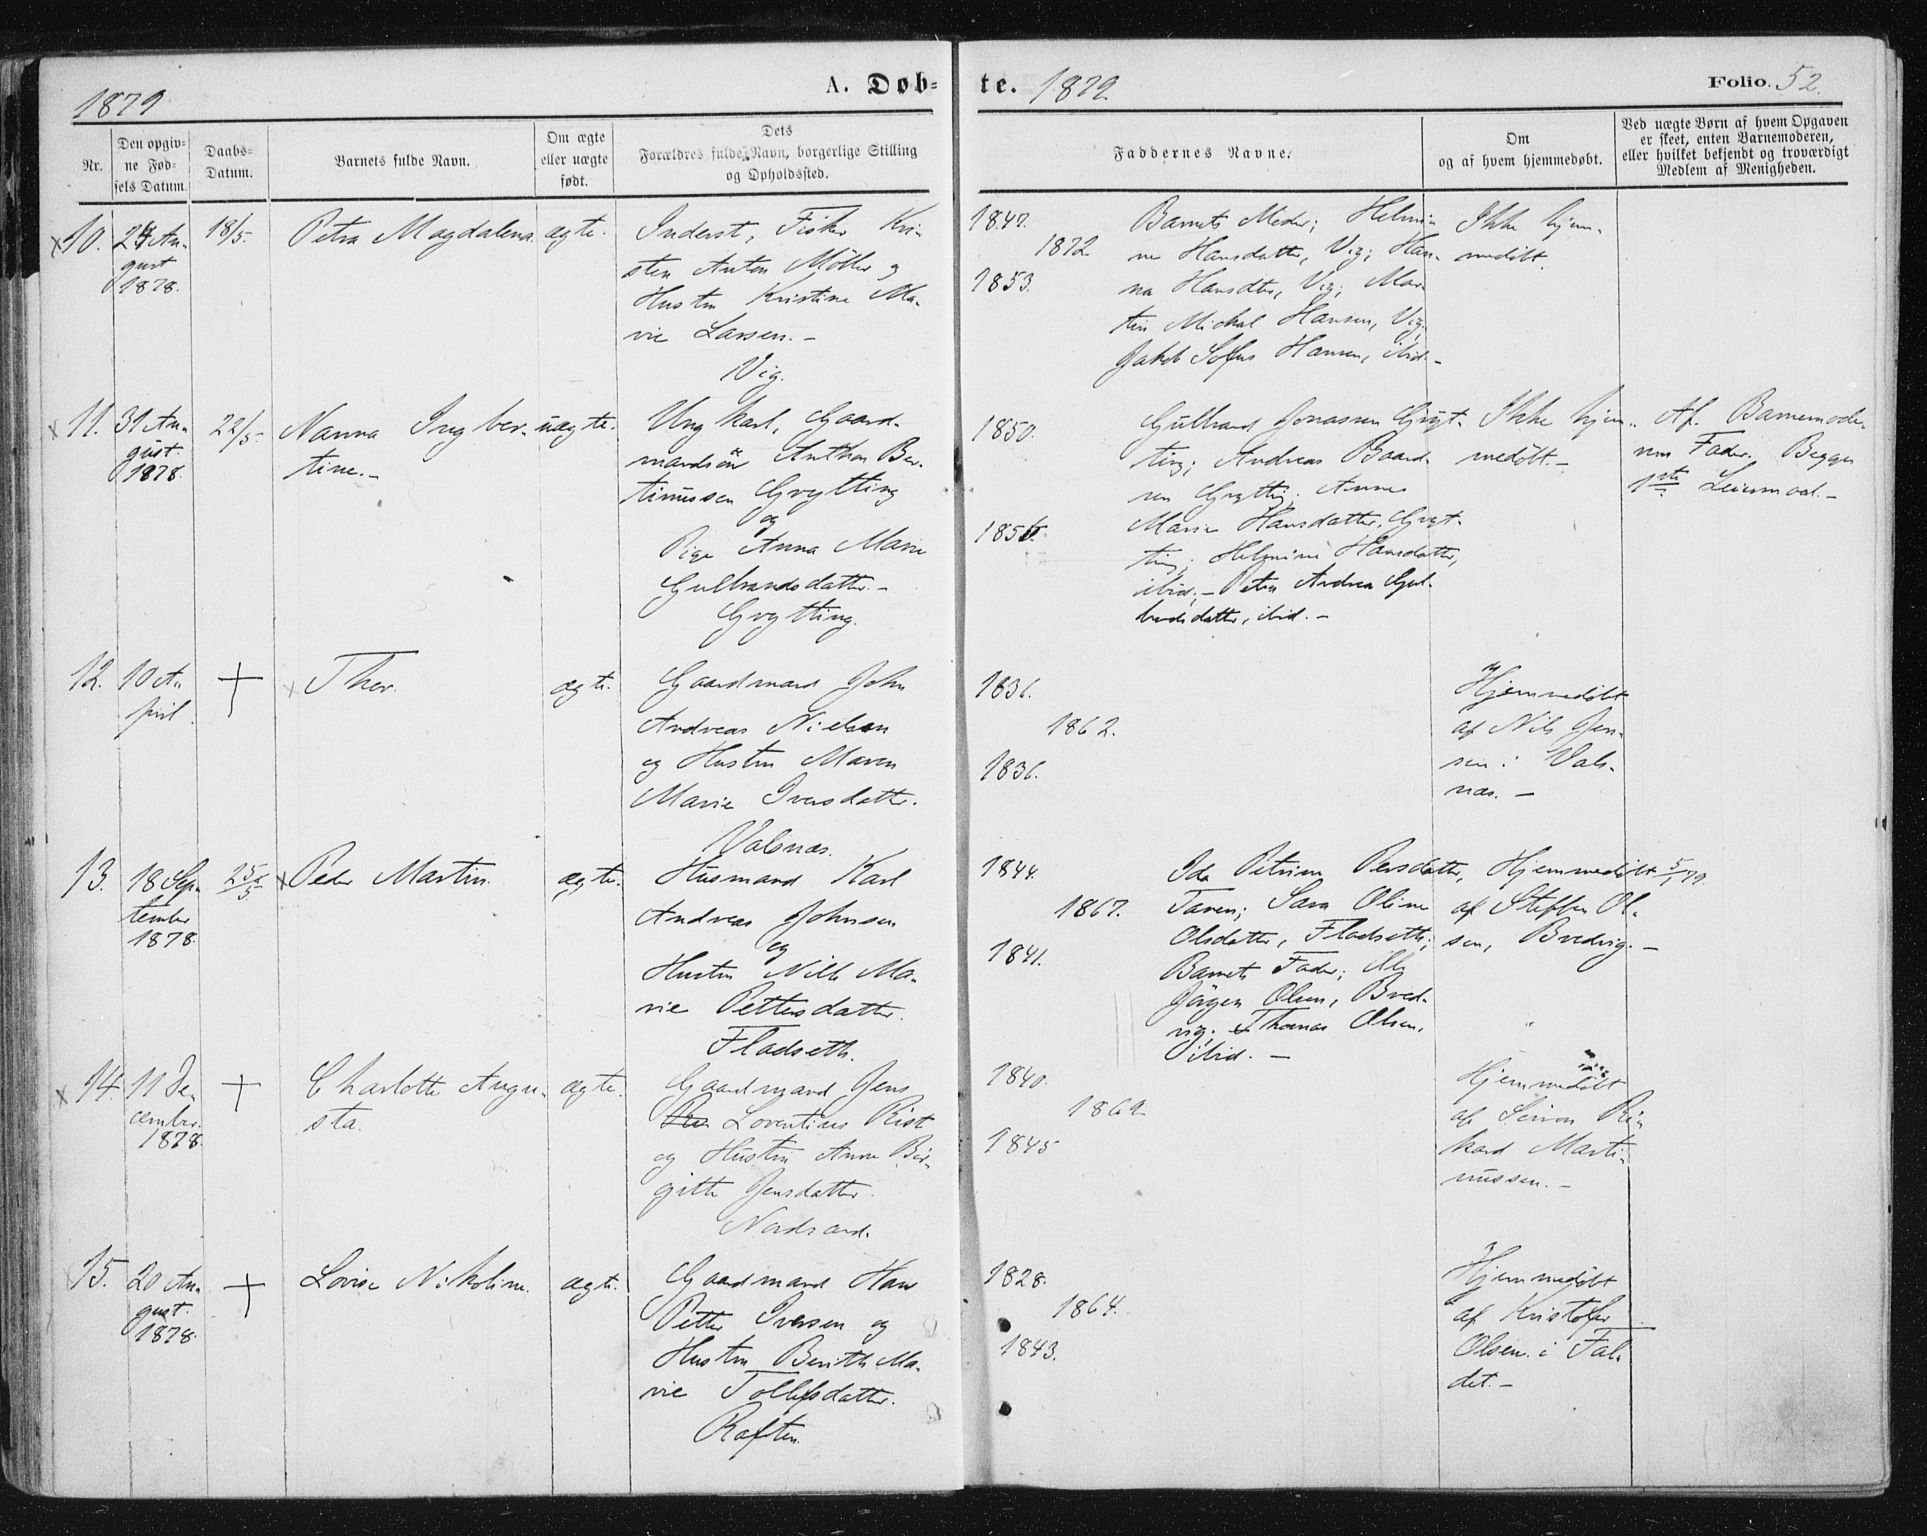 1879
A. Døb-
te. 1879.
Folio. 52.
Nr.
Den opgiv-
ne Fød-
sels Datum.
Daabs-
Datum.
Barnets fulde Navn.
Om ægte
eller uægte
født.
Dets
Forældres fulde Navn, borgerlige Stilling
og Opholdssted.
Faddernes Navne.
Om
og af hvem hjemmedøbt.
Ved uægte Børn af hvem Opgaven
er skeet, enten Barnemoderen,
eller hvilket bekjendt og troværdigt
Medlem af Menigheden.
10.
24 Au-
gust
1878.
18/5.
Petra Magdalena
ægte.
Inderst, Fisker Kri-
sten Anton Möller og
Hustru Kristine Ma-
rie Larsen. -
Vig.
1847.
1872
1853.
Barnets Moder; Helmi-
ne Hansdatter, Vig; Han-
na Hansdtr, Vig; Mar-
tin Mikal Hansen, Vig,
Jakob Sofus Hansen, ibid. -
Ikke hjem-
medöbt.
11.
31 Au-
gust.
1878.
22/5
Nanna Ingber-
tine. -
uægte.
Ungkarl, Gaard-
mandsön Anthon Ber-
tinussen Grytting
og
Pige Anna Marie
Gulbrandsdatter. -
Grytting.
1850.
1856.
Gulbrand Jonassen Gryt-
ting; Andreas Baard-
sen Grytting; Anne
Marie Hansdatter, Gryt-
ting; Helmine Hansdatter,
ibid; - Petra Andrea Gul-
brandsdatter, ibid. -
Ikke hjem-
medöbt. -
Af Barnemode-
rens Fader. Begges
1ste Leiermaal. -
12.
10 A-
pril.
+
Thor.
ægte.
Gaardmand John
Andreas Nielsen
og Hustru Maren
Marie Iversdatter.
Valsnæs.
1836.
1862.
1836.
Hjemmedöbt
af Nils Jen-
sen i Vals-
næs. -
13.
18 Sep-
tember
1878.
25/5
Peder Martin.
ægte.
Husmand Karl
Andreas Johnsen
og
Hustru Nille Ma-
rie Pettersdatter.
Fladseth.
1844.
1867.
1841.
Ida Petrine Persdatter,
Taren; Sara Oline
Olsdatter, Fladseth;
Barnets Fader; Ole
Jörgen Olsen, Bred-
vig; Thomas Olsen,
ibid. -
Hjemmedöbt 5/1 79.
af Steffen Ol-
sen, Bredvig. -
14.
11 De-
cember.
1878.
+
Charlotte Augu-
sta.
ægte.
Gaardmand Jens
Lorentius Rist
og Hustru Anne Bir-
gitte Jensdatter.
Nordsand.
1840.
1869
1845
Hjemmedöbt
af Simon Ri-
kard Marti-
nussen. -
15.
20 Au-
gust.
1878.
+
Lovise Nikoline.
ægte.
Gaardmand Hans
Petter Iversen og
Hustru Berith Ma-
rie Tollefsdatter.
Raften.
1828.
1864.
1843.
Hjemmedöbt
af Kristofer
Olsen i Fal-
det. -